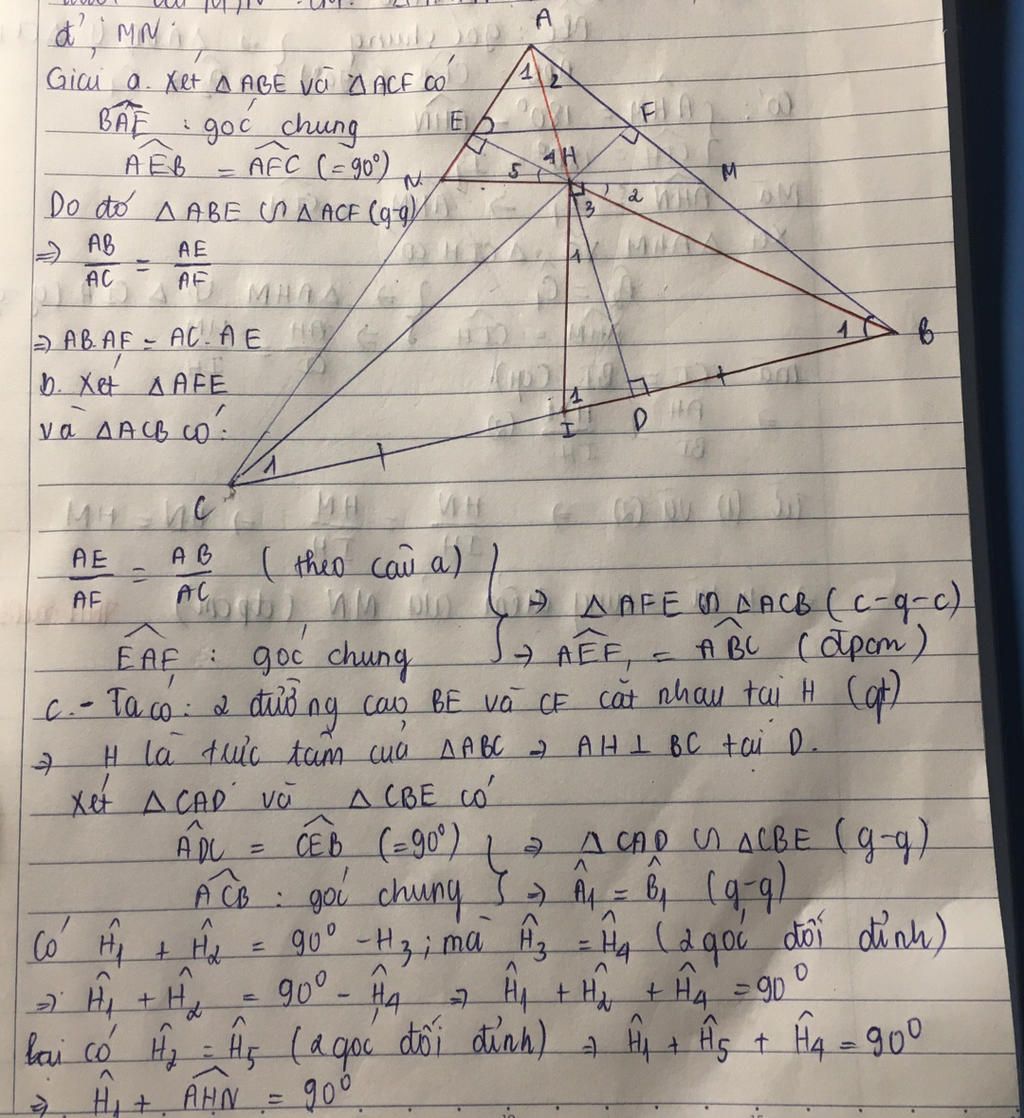 d', MN
Giải a. Xét △ABE và △ACF có
BAE : góc chung
AEB = AFC (=90°)
Do đó △ABE ∽ △ACF (g-g)
⇒ AB/AC = AE/AF
⇒ AB.AF = AC.AE
b. Xét △AFE
và △ACB có:
A
1 2
E
F
4 H
N
5
M
2
3
1
1
B
1
I
D
1
C
AE/AF = AB/AC (theo câu a)
⇒ △AFE ∽ △ACB (c-g-c)
EAF : góc chung
⇒ AEF₁ = ABC (đpcm)
c.- Ta có: 2 đường cao BE và CF cắt nhau tại H (gt)
⇒ H là trực tâm của △ABC ⇒ AH ⊥ BC tại D.
Xét △CAD và △CBE có
ADC = CEB (=90°) ⇒ △CAD ∽ △CBE (g-g)
ACB : góc chung ⇒ Â₁ = B̂₁ (g-g)
Có Ĥ₁ + Ĥ₂ = 90° - H₃; mà Ĥ₃ = Ĥ₄ (2 góc đối đỉnh)
⇒ Ĥ₁ + Ĥ₂ = 90° - Ĥ₄ ⇒ Ĥ₁ + Ĥ₂ + Ĥ₄ = 90°
Lại có Ĥ₂ = Ĥ₅ (2 góc đối đỉnh) ⇒ Ĥ₁ + Ĥ₅ + Ĥ₄ = 90°
⇒ Ĥ₁ + AHN = 90°